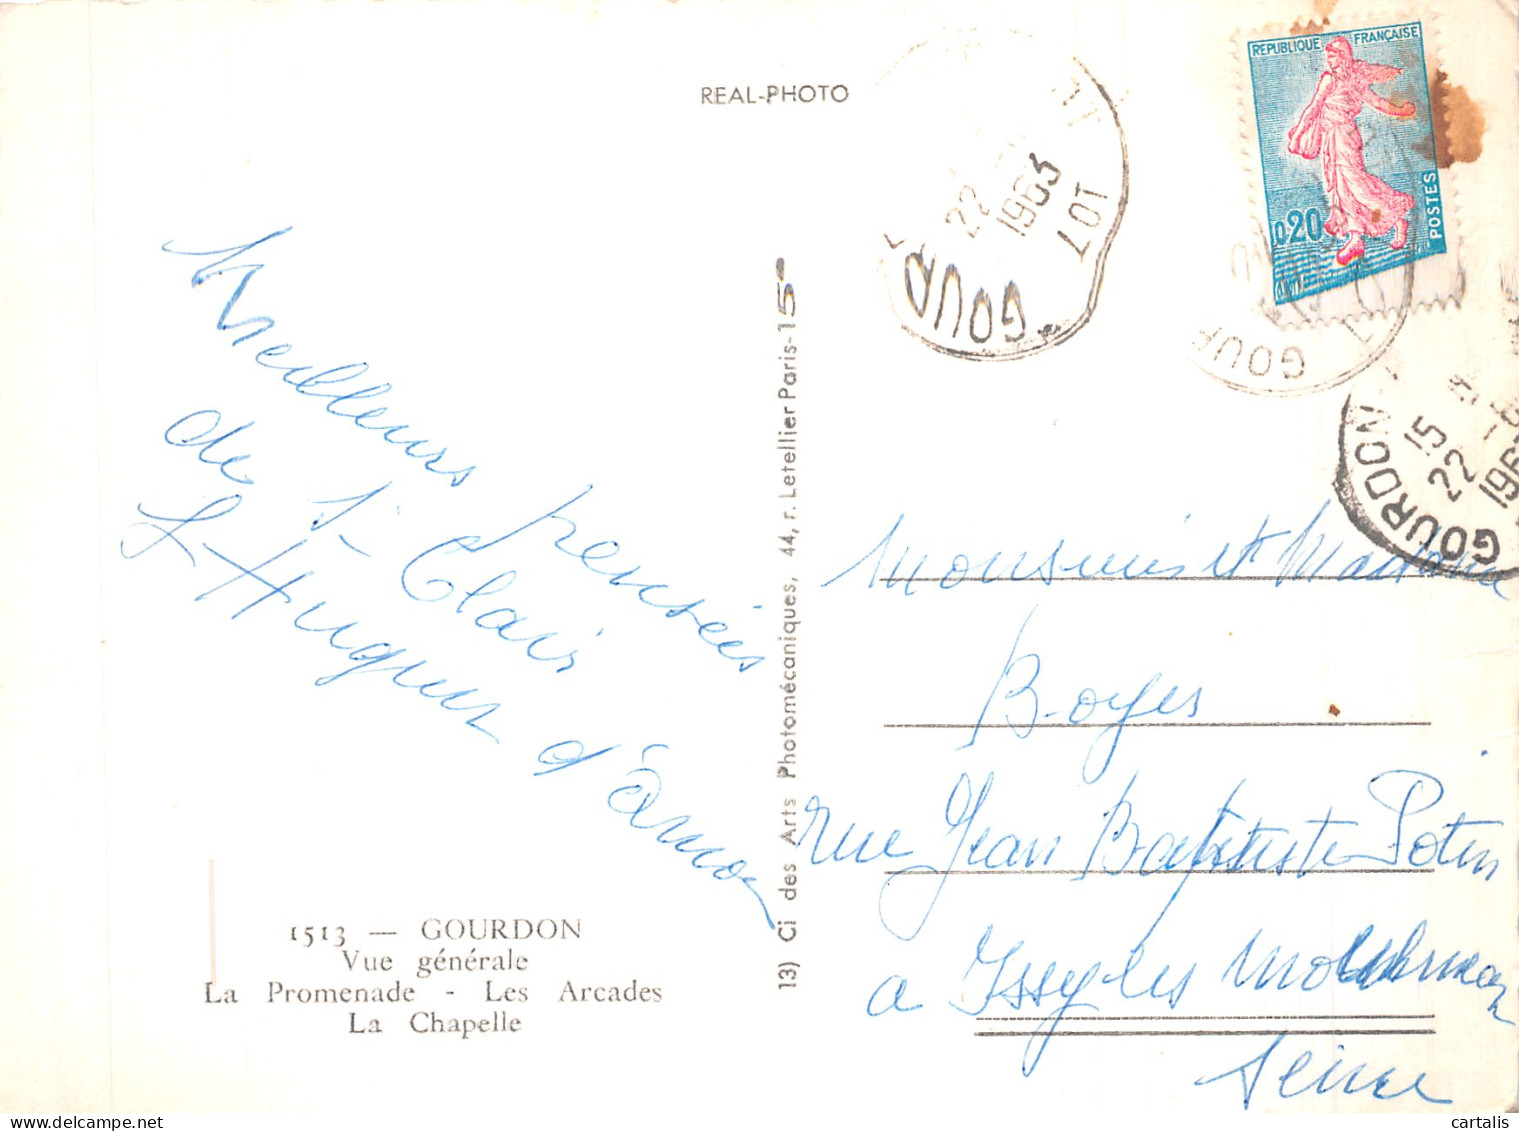 REAL-PHOTO
REPUBLIQUE FRANÇAISE
0,20
POSTES
22
1963
GOUR
LOT
GOUR
GOURDON
15
22
196
Meilleurs pensées
de St Clair
d'
Monsieur et Madame
Boyes
rue Jean Baptiste Potin
a Issy les Moulineaux
Seine
13) Ci des Arts Photomécaniques, 44, r. Letellier Paris-15e
1513 — GOURDON
Vue générale
La Promenade - Les Arcades
La Chapelle
cartalis